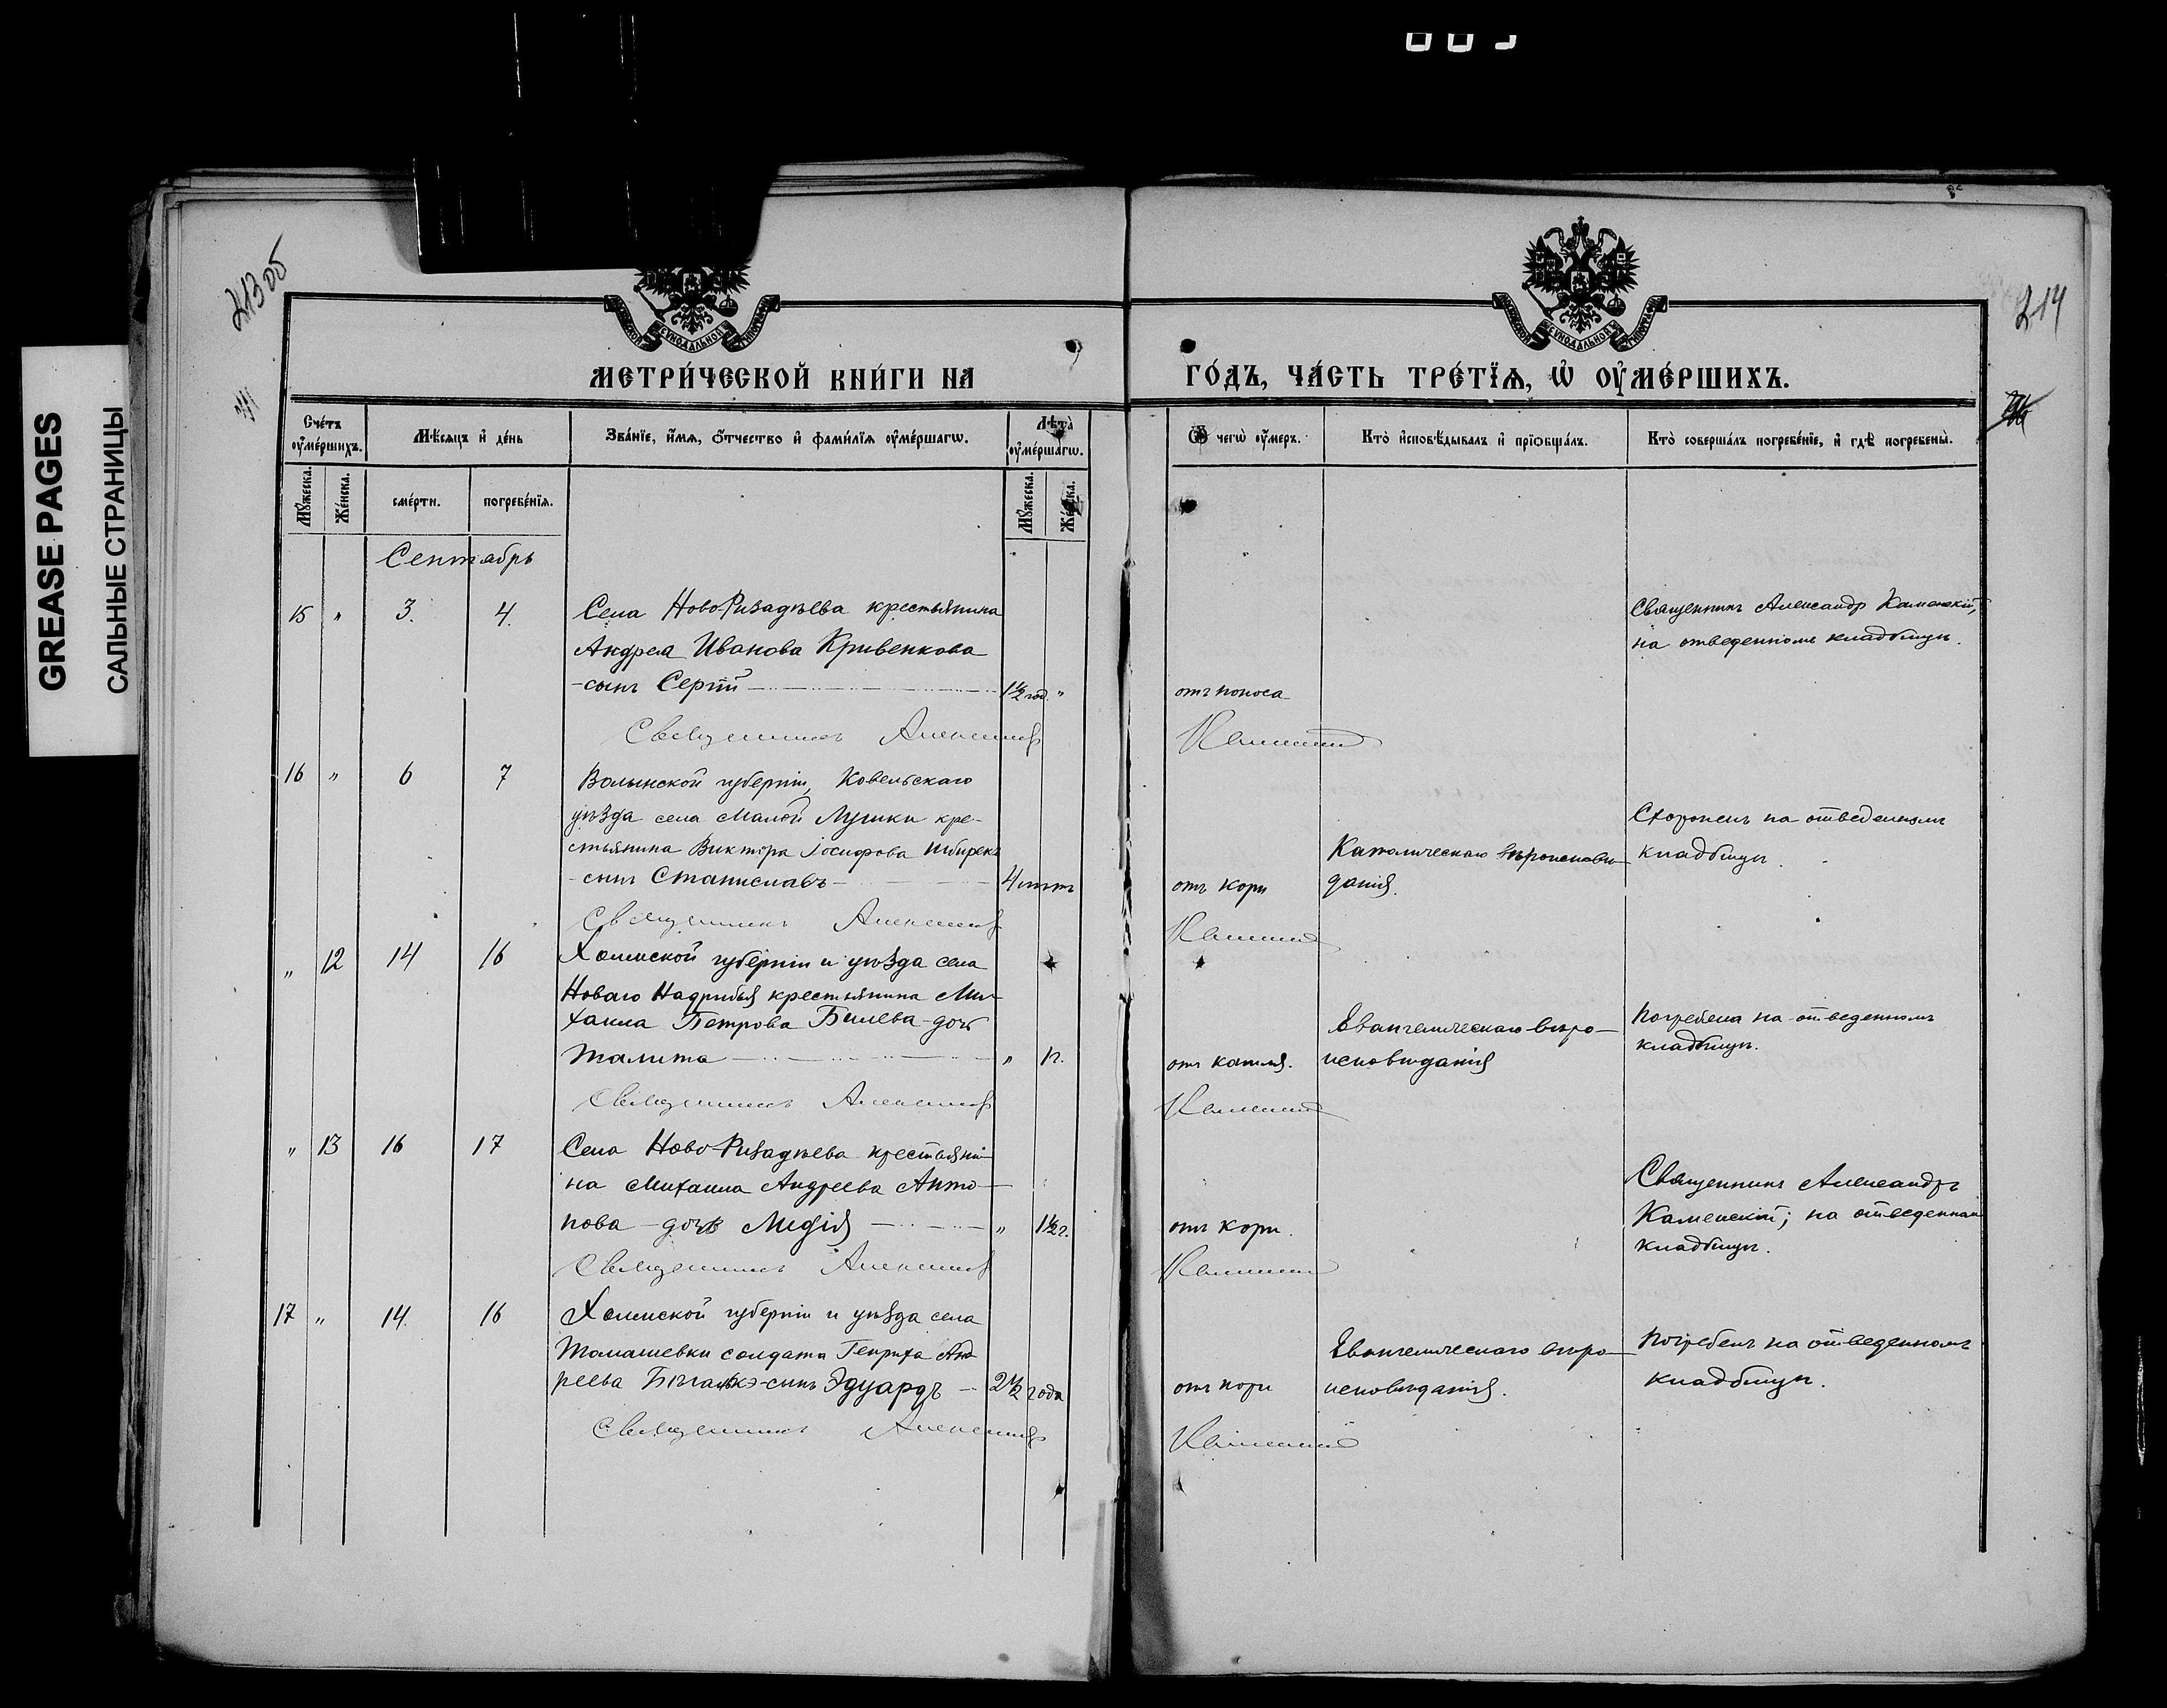 GREASE PAGES
САЛЬНЫЕ СТРАНИЦЫ
213 об
214
МЕТРИ́ЧЕСКОЙ КНИ́ГИ НА
ГО́ДЪ, ЧА́СТЬ ТРЕ́ТЇѦ, Ѡ҆ ОУ҆МЕ́РШИХЪ.
Сче́тъ оу҆ме́ршихъ.
Мѣ́сяцъ и҆ де́нь
Зва́нїе, и҆́мѧ, ѻ҆́тчество и҆ фами́лїѧ оу҆ме́ршагѡ.
Лѣ́та оу҆ме́ршагѡ.
Ѿ чегѡ̀ оу҆́меръ.
Кто̀ и҆сповѣ́дывалъ и҆ прїѻбща́лъ.
Кто̀ соверша́лъ погребе́нїе, и҆ гдѣ̀ погребены̀.
Мꙋ́жеска.
Же́нска.
сме́рти.
погребе́нїѧ.
Мꙋ́жеска.
Же́нска.
Сентябрь
15 " 3. 4. Села Ново-Ризадѣева крестьянина
Андрея Иванова Кривенкова
-сынъ Сергій 1½ год. "
отъ поноса
Священникъ Александръ Каменскій,
на отведенномъ кладбищѣ.
Священникъ Александръ Каменскій
16 " 6 7 Волынской губерніи, Ковельскаго
уѣзда села Малой Лушки кре-
стьянина Виктора Іосифова
-сынъ Станиславъ 4 лѣтъ
отъ кори
Католическаго вѣроисповѣ-
данія.
Схороненъ на отведенномъ
кладбищѣ.
Священникъ Александръ Каменскій
" 12 14 16 Холмской губерніи и уѣзда села
Новаго Надрыбья крестьянина Ми-
хаила Петрова Билева-дочь
Талита " 1г.
отъ кашля.
Евангелическаго вѣро-
исповѣданія
Погребена на отведенномъ
кладбищѣ.
Священникъ Александръ Каменскій
" 13 16 17 Села Ново-Ризадѣева крестьяни-
на Михаила Андреева Анто-
нова - дочь Лидія " 1½ г.
отъ кори.
Священникъ Александръ
Каменскій; на отведенном
кладбищѣ.
Священникъ Александръ Каменскій
17 " 14. 16 Холмской губерніи и уѣзда села
Томашевки солдата Генриха Анд-
реева -сынъ Эдуардъ - 2½ года
отъ кори
Евангелическаго вѣро-
исповѣданія.
Погребенъ на отведенномъ
кладбищѣ.
Священникъ Александръ Каменскій